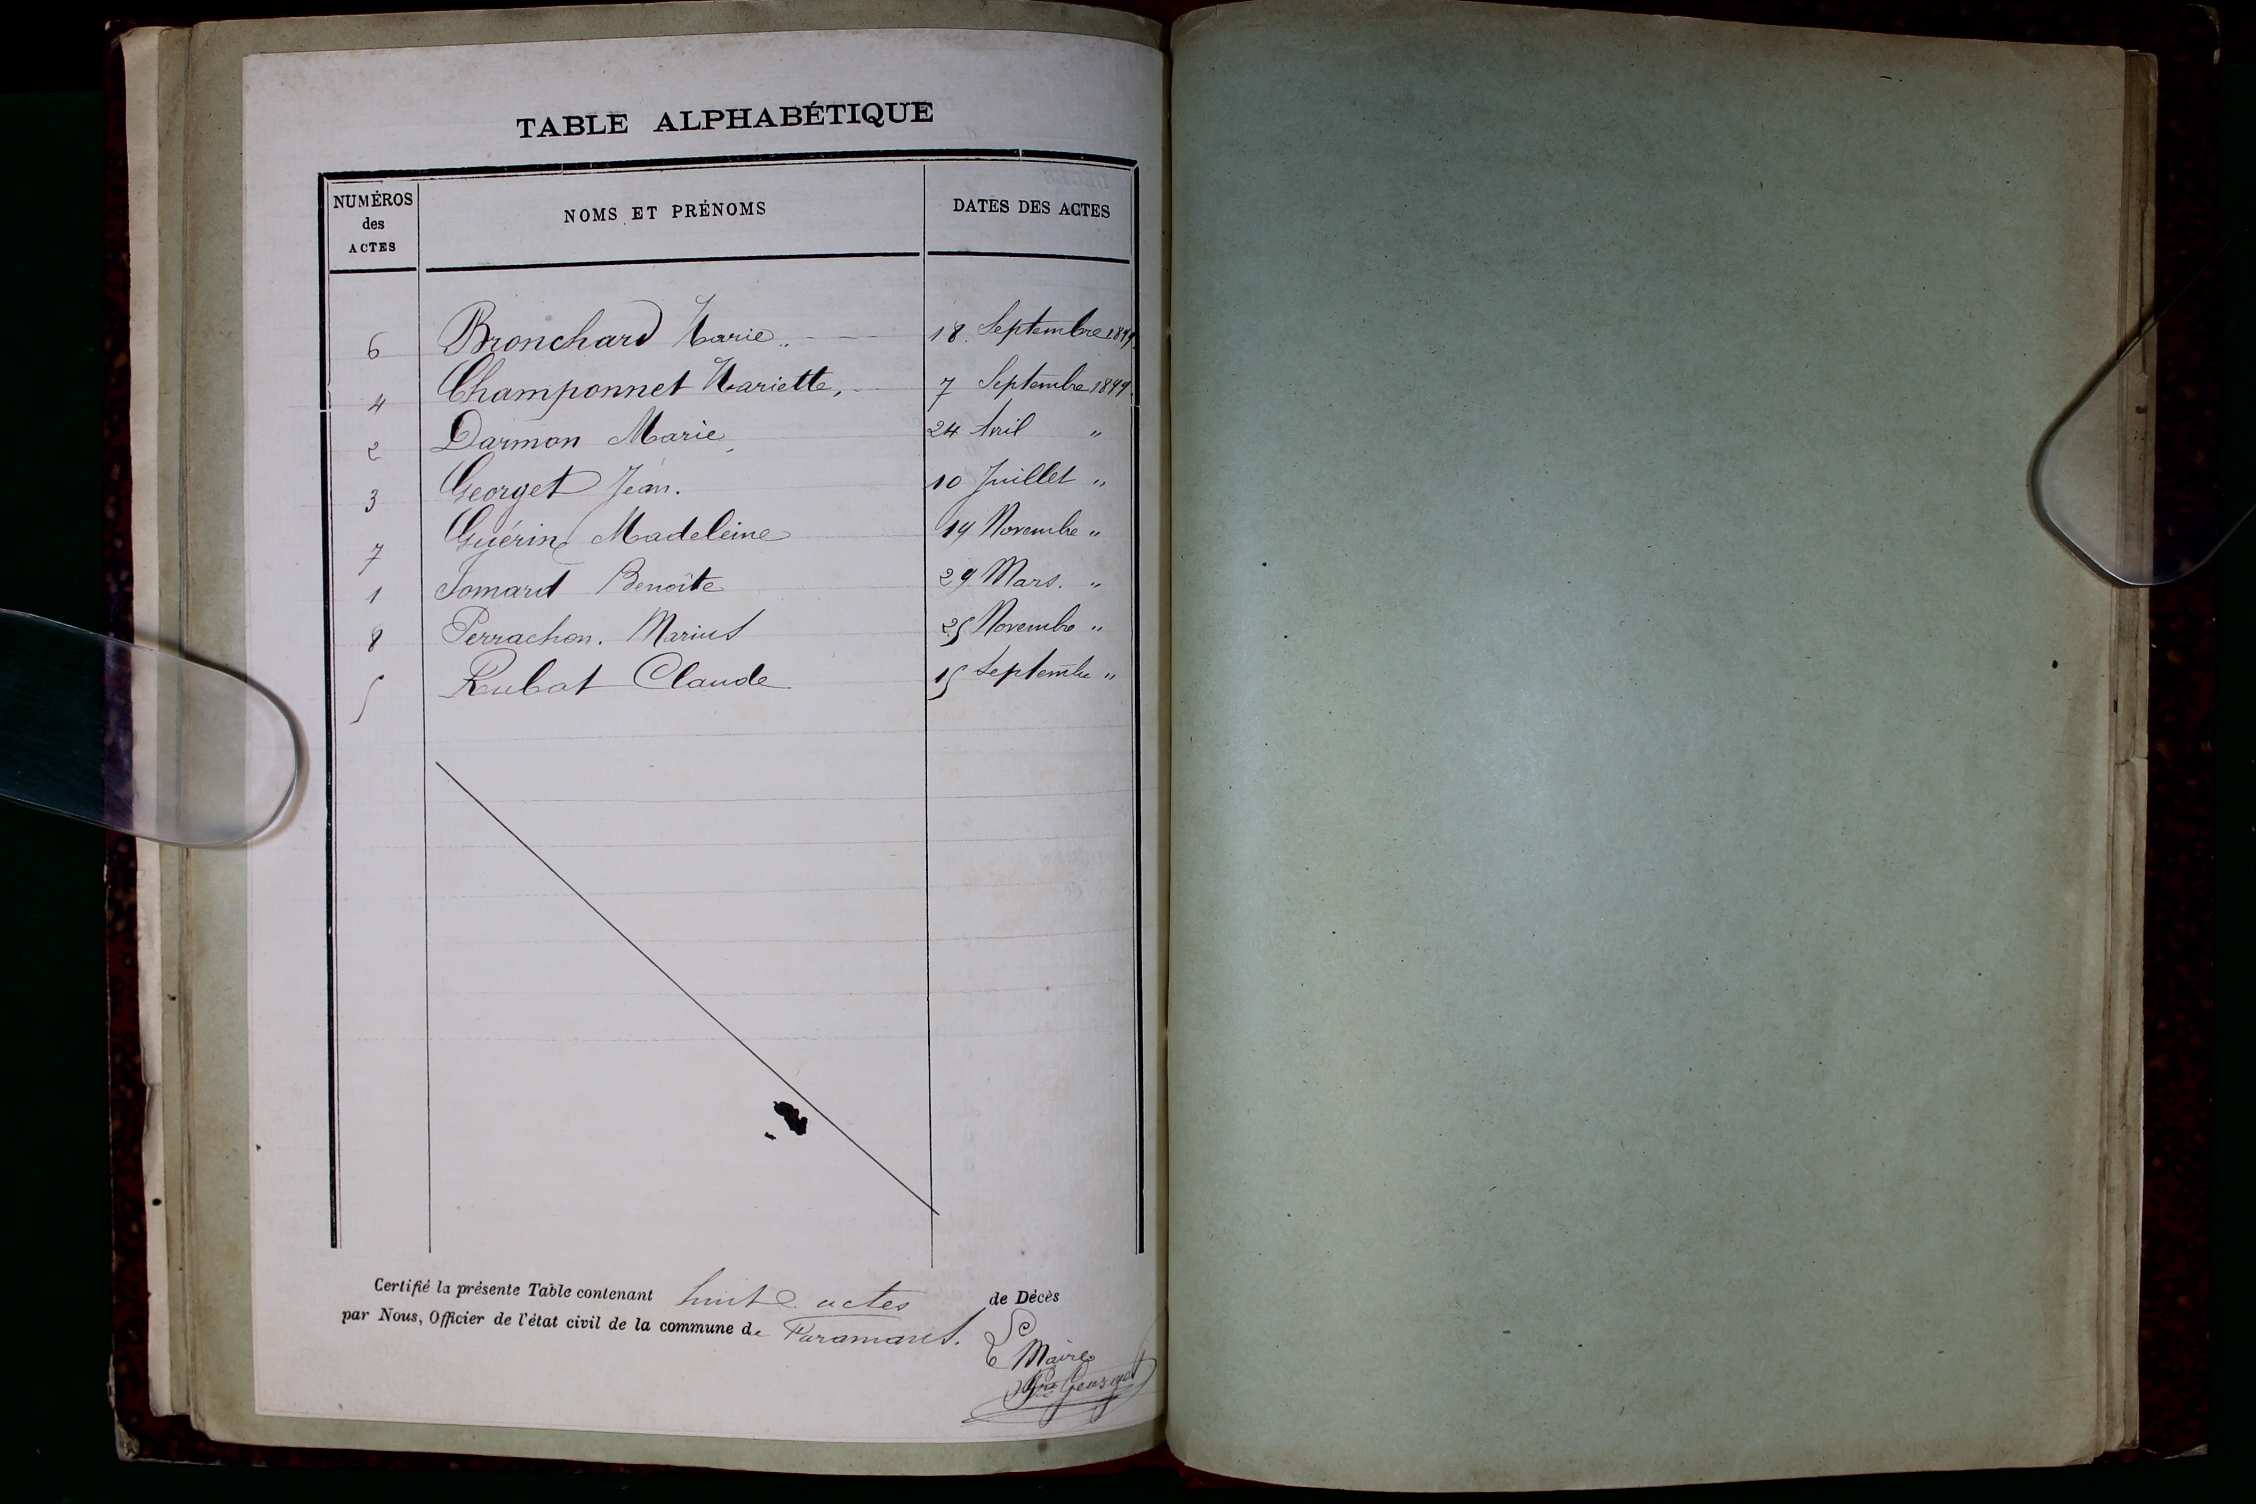 TABLE ALPHABÉTIQUE
NUMÉROS des ACTES
NOMS ET PRÉNOMS
DATES DES ACTES
6 Bronchard Marie 18 Septembre 1899
4 Champonnet Mariette, 7 Septembre 1899
2 Darmon Marie, 24 Avril "
3 Georget Jean. 10 Juillet "
7 Guérin Madeleine 19 Novembre "
1 Jomard Benoîte 29 Mars. "
8 Perrachon. Marius 25 Novembre "
5 Rubat Claude 15 Septembre "
Certifié la présente Table contenant huit actes de Décès
par Nous, Officier de l'état civil de la commune de
Le
Maire